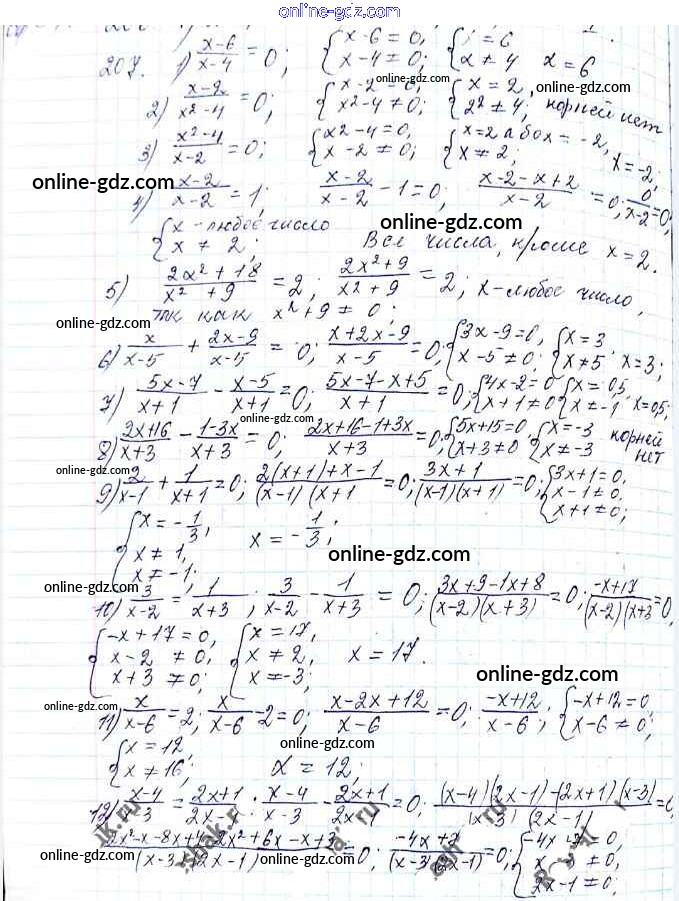 online-gdz.com
207. 1) (x-6)/(x-4) = 0; {x-6=0, x-4≠0; {x=6 x≠4 x=6
2) (x-2)/(x²-4) = 0; {x-2=0, x²-4≠0; {x=2, 2²≠4; корней нет
3) (x²-4)/(x-2) = 0; {x²-4=0, x-2≠0; {x=2 або x=-2, x≠2; x=-2;
online-gdz.com
4) (x-2)/(x-2) = 1; (x-2)/(x-2) - 1 = 0; (x-2-x+2)/(x-2) = 0; 0/(x-2) = 0;
{x-любое число x≠2; Все числа, кроме x=2.
online-gdz.com
5) (2x²+18)/(x²+9) = 2; (2x²+9)/(x²+9) = 2; x-любое число,
так как x²+9≠0;
online-gdz.com
6) x/(x-5) + (2x-9)/(x-5) = 0; (x+2x-9)/(x-5) = 0; {3x-9=0, x-5≠0; {x=3 x≠5; x=3;
online-gdz.com
7) (5x-7)/(x+1) - (x-5)/(x+1) = 0; (5x-7-x+5)/(x+1) = 0; {4x-2=0 x+1≠0 {x=0,5 x≠-1; x=0,5;
online-gdz.com
8) (2x+16)/(x+3) - (1-3x)/(x+3) = 0; (2x+16-1+3x)/(x+3) = 0; {5x+15=0 x+3≠0 {x=-3 x≠-3 корней нет
online-gdz.com
9) 2/(x-1) + 1/(x+1) = 0; (2(x+1)+x-1)/((x-1)(x+1 = 0; (3x+1)/((x-1)(x+1)) = 0; {3x+1=0, x-1≠0, x+1≠0;
{x=-1/3, x≠1, x≠-1; x=-1/3;
online-gdz.com
online-gdz.com
10) 3/(x-2) = 1/(x+3); 3/(x-2) - 1/(x+3) = 0; (3x+9-1x+8)/((x-2)(x+3)) = 0; (-x+17)/((x-2)(x+3 = 0,
{-x+17=0, x-2≠0, x+3≠0; {x=17, x≠2, x≠-3; x=17.
online-gdz.com
online-gdz.com
11) x/(x-6) = 2; x/(x-6) - 2 = 0; (x-2x+12)/(x-6) = 0; (-x+12)/(x-6); {-x+12=0 x-6≠0;
{x=12 x≠16; x=12;
online-gdz.com
12) (x-4)/(x-3) = (2x+1)/(2x-1); (x-4)/(x-3) - (2x+1)/(2x-1) = 0; ((x-4)(2x-1)-(2x+1)(x-3))/((x-3)(2x-1)
online-gdz.com
(-4x+7)/((x-3)(2x-1)) = 0; 2x-1≠0;
online-gdz.com